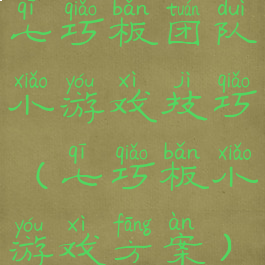 qī qiǎo bǎn tuán duì
七巧板团队
xiǎo yóu xì jì qiǎo
小游戏技巧
qī qiǎo bǎn xiǎo
（七巧板小
yóu xì fāng àn
游戏方案）